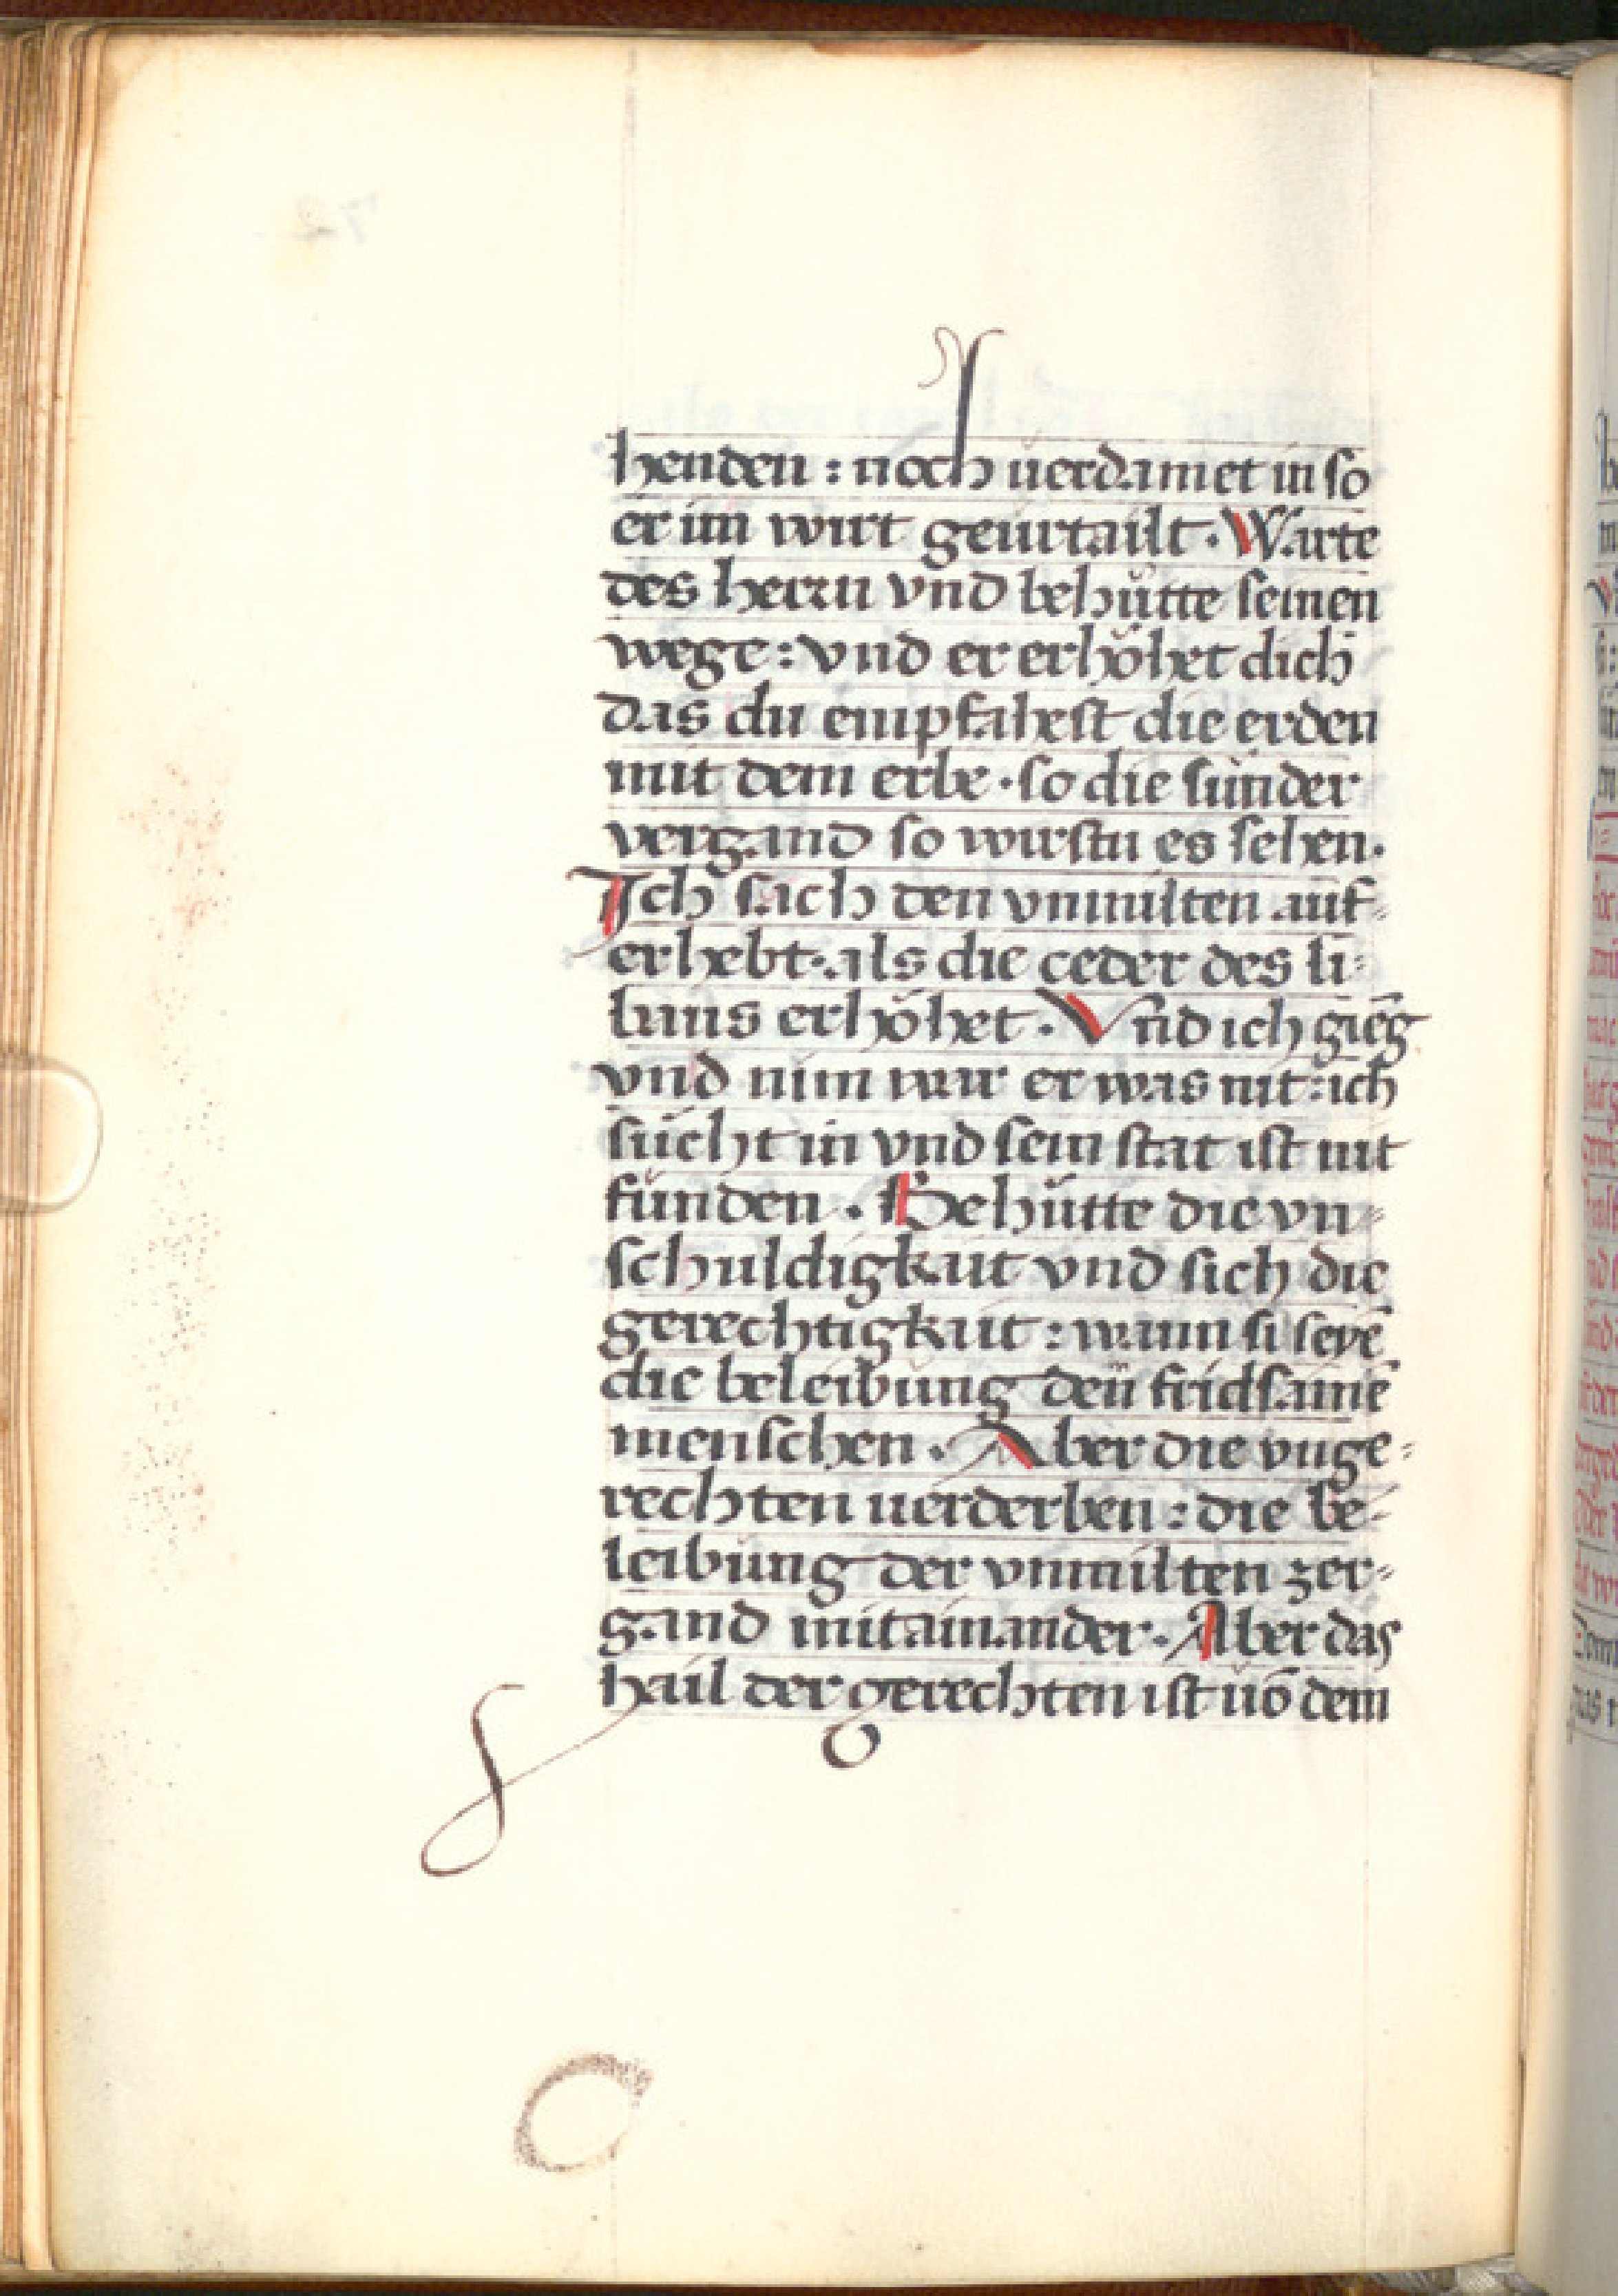 henden : noch uerdamet in so
er im wirt geurtailt · Warte
des herrn vnd behůtte seinen
wege : vnd er erhöhet dich
das du empfahest die erden
mit dem erbe · so die sünder
vergand so wirstu es sehen ·
Ich sach den vnmilten auf=
erhebt · als die ceder des li=
bans erhöhet · Vnd ich gieng
vnd nim war er was nit : ich
sůcht in vnd sein stat ist nit
funden · Behůtte die vn=
schuldigkait vnd sich die
gerechtigkait : wann si seyē
die beleibung den fridsamē
menschen · Aber die vnge=
rechten uerderben : die be=
leibung der vnmilten zer=
gand mitainander · Aber das
hail der gerechten ist uō dem